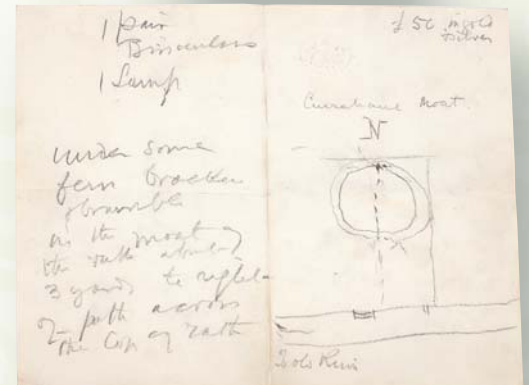 1 pair
Binoculars
1 Lamp
under some
fern bracken
& bramble
in the moat of
the rath about
3 yards to right
of path across
the top of rath
£50 in gold
& silver
Currahane Moat.
N